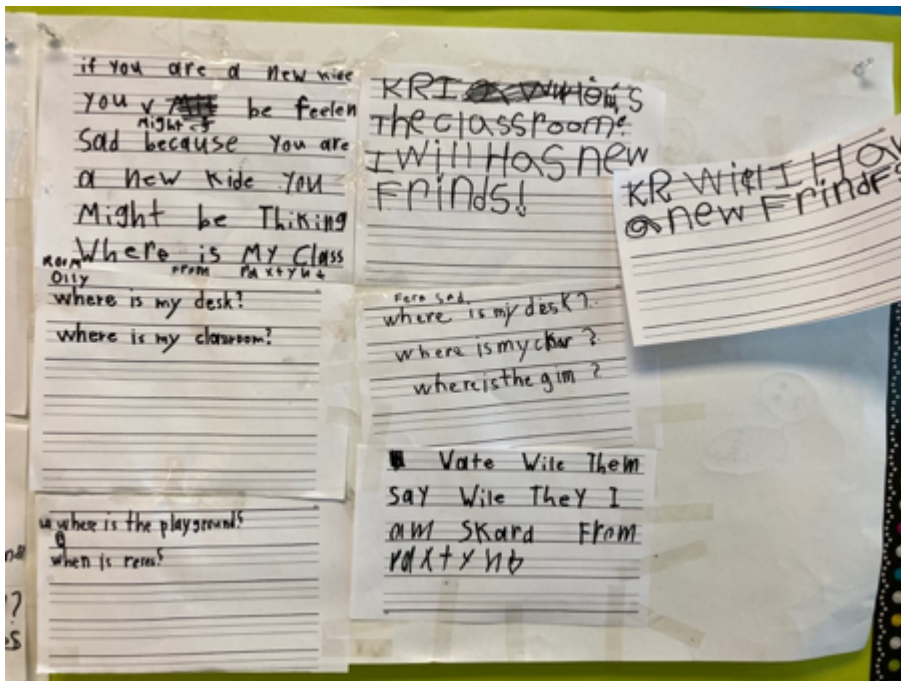 if you are a new kide
you might be feelen
Sad because you are
a new kide you
Might be Thiking
Where is My Class
ROOM From Paxtyn
Olly
where is my desk?
where is my classroom?
where is the playground?
when is reces?
KRI
The classroom?
I Will Has new
Frinds!
KR Will I Hav
a new Frinds
From Sad.
where is my desk?
where is my char?
where is the gim?
Vate Wile Them
say Wile They I
am Skard From